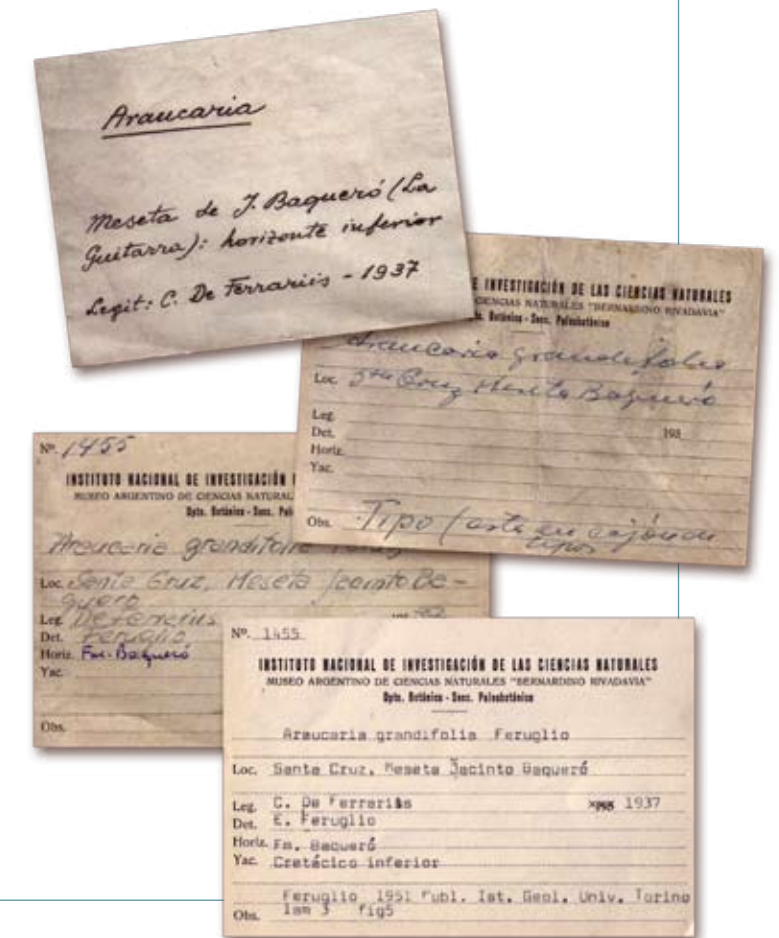 Araucaria
Meseta de J. Baqueró (La
Guitarra): horizonte inferior
Legit: C. De Ferrariis - 1937
E INVESTIGACIÓN DE LAS CIENCIAS NATURALES
CIENCIAS NATURALES "BERNARDINO RIVADAVIA"
to. Botánica - Secc. Paleobotánica
Araucaria grandifolia
Loc. Sta Cruz Meseta Baqueró
Leg.
Det. 195
Horiz.
Yac.
Obs. Tipo (está en cajón de
tipos
Nº. 1455
INSTITUTO NACIONAL DE INVESTIGACIÓN
MUSEO ARGENTINO DE CIENCIAS NATURAL
Dpto. Botánica - Secc. Pal
Araucaria grandifolia
Loc. Santa Cruz, Meseta Jacinto Ba-
quero
Leg. De Ferrariis
Det. Feruglio
Horiz. Fm. Baqueró
Yac.
Obs.
Nº. 1455
INSTITUTO NACIONAL DE INVESTIGACIÓN DE LAS CIENCIAS NATURALES
MUSEO ARGENTINO DE CIENCIAS NATURALES "BERNARDINO RIVADAVIA"
Dpto. Botánica - Secc. Paleobotánica
Araucaria grandifolia Feruglio
Loc. Santa Cruz, Meseta Jacinto Baqueró
Leg. C. De Ferrariis 1937
Det. E. Feruglio
Horiz. Fm. Baqueró
Yac. Cretácico inferior
Feruglio 1951 Publ. Ist. Geol. Univ. Torino
Obs. lam 3 fig5